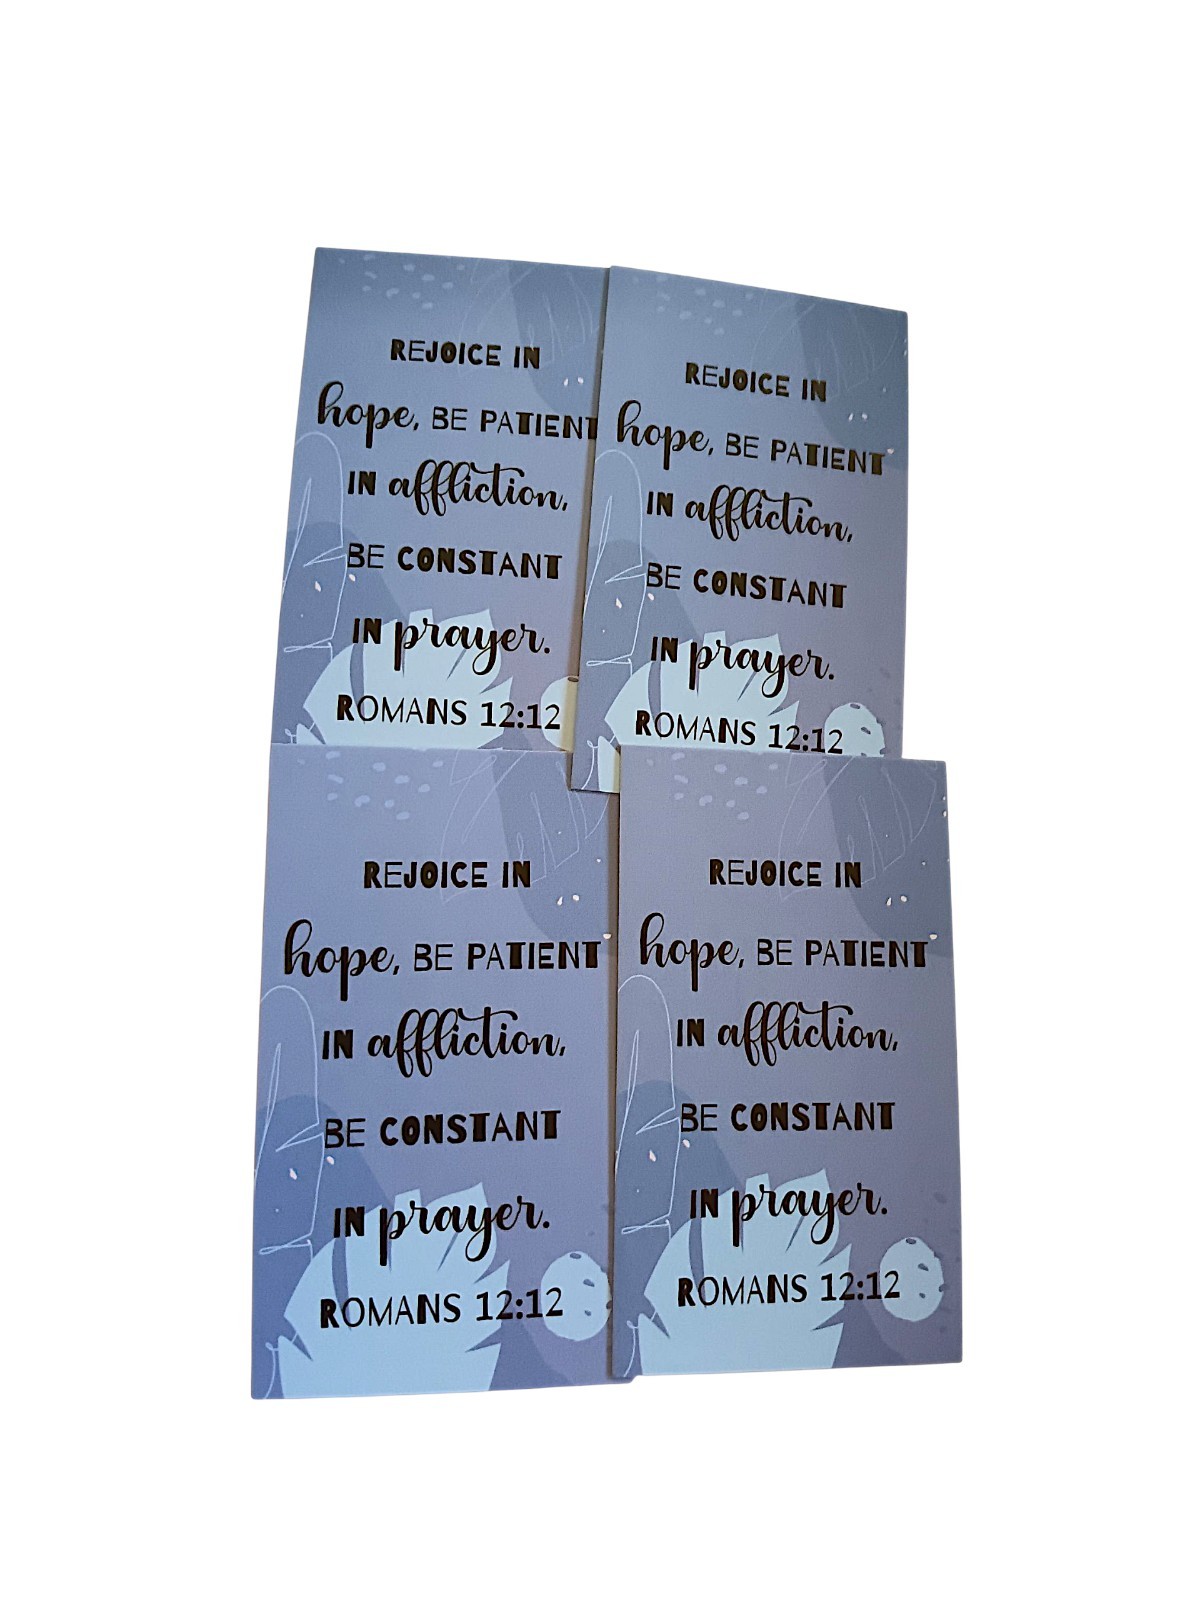 REJOICE IN
hope, BE PATIENT
IN affliction,
BE CONSTANT
IN prayer.
ROMANS 12:12
REJOICE IN
hope, BE PATIENT
IN affliction,
BE CONSTANT
IN prayer.
ROMANS 12:12
REJOICE IN
hope, BE PATIENT
IN affliction,
BE CONSTANT
IN prayer.
ROMANS 12:12
REJOICE IN
hope, BE PATIENT
IN affliction,
BE CONSTANT
IN prayer.
ROMANS 12:12